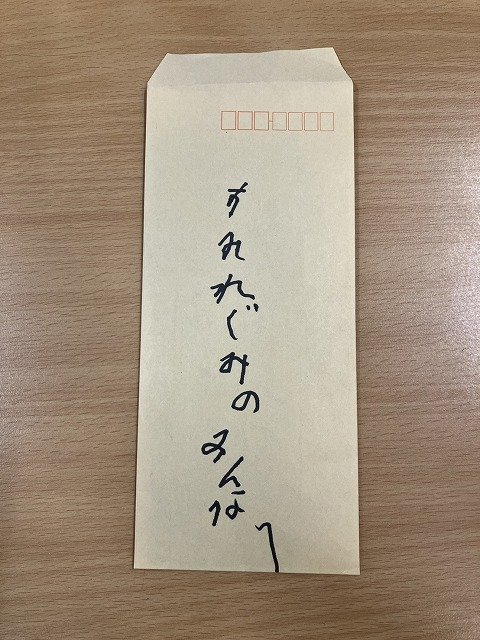 すみれぐみの
みんなへ